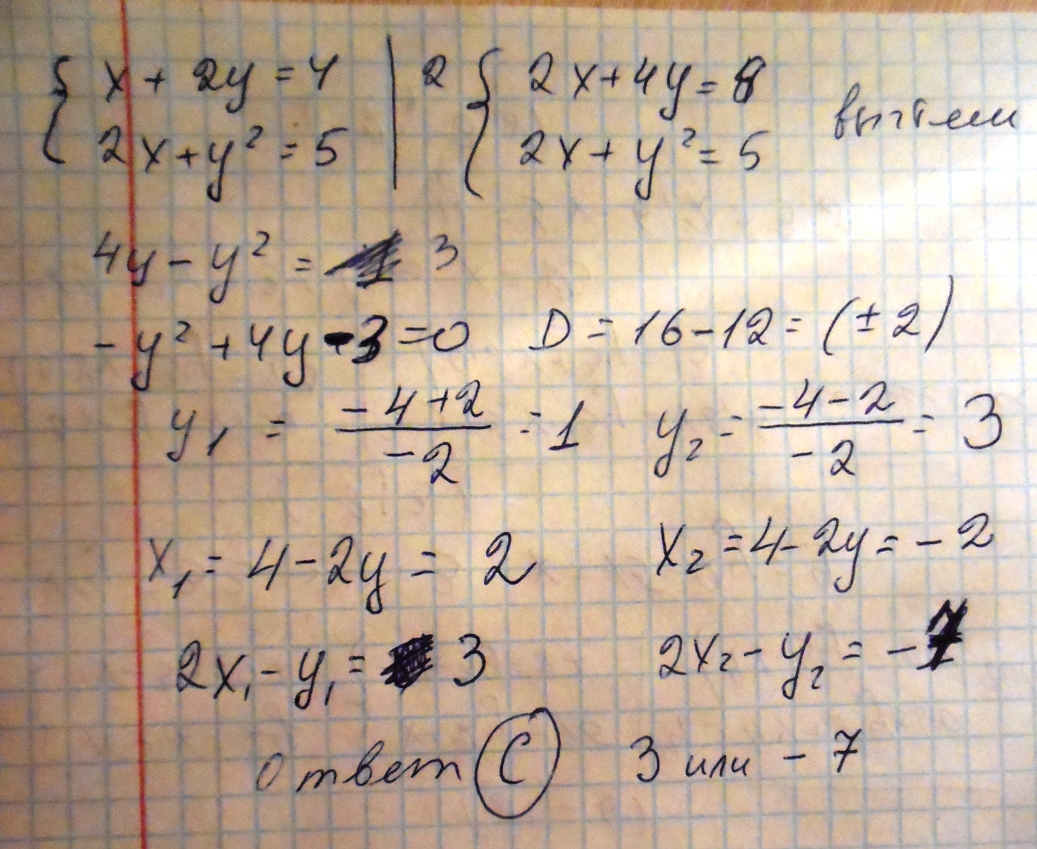 x + 2y = 4 | 2 { 2x + 4y = 8
{ 2x + y² = 5 | { 2x + y² = 5 вычтем
4y - y² = 3
- y² + 4y - 3 = 0 D = 16 - 12 = (± 2)
y₁ = (-4+2)/(-2) = 1 y₂ = (-4-2)/(-2) = 3
x₁ = 4 - 2y = 2 x₂ = 4 - 2y = - 2
2x₁ - y₁ = 3 2x₂ - y₂ = - 7
ответ C 3 или - 7